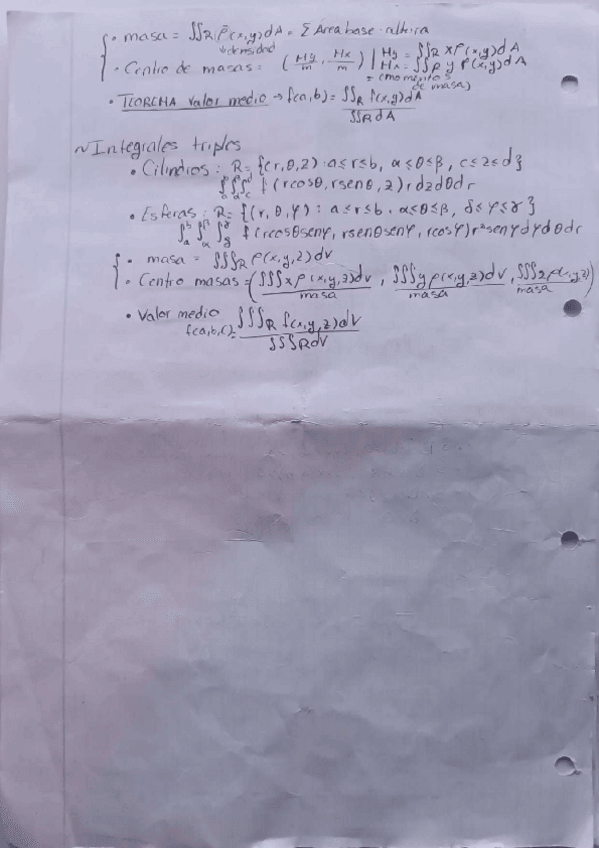 • masa = ∬R ρ(x,y)dA = Σ Área base · altura
↓densidad
• Centro de masas = (My/m, Mx/m) | My = ∬R xρ(x,y)dA
Mx = ∬R yρ(x,y)dA
= (momentos de masa)
• TEOREMA Valor medio → f(a,b) = ∬R f(x,y)dA / ∬R dA
~ Integrales triples
• Cilindros : R = {(r,θ,z) : a≤r≤b, α≤θ≤β, c≤z≤d}
∫a^b ∫α^β ∫c^d f(rcosθ, rsenθ, z) r dz dθ dr
• Esferas : R = {(r,θ,φ) : a≤r≤b, α≤θ≤β, δ≤φ≤γ}
∫a^b ∫α^β ∫δ^γ f(rcosθsenφ, rsenθsenφ, rcosφ) r² senφ dφ dθ dr
• masa = ∭R ρ(x,y,z)dv
• Centro masas = (∭xρ(x,y,z)dv / masa, ∭yρ(x,y,z)dv / masa, ∭zρ(x,y,z) / masa)
• Valor medio
f(a,b,c) = ∭R f(x,y,z)dV / ∭R dV